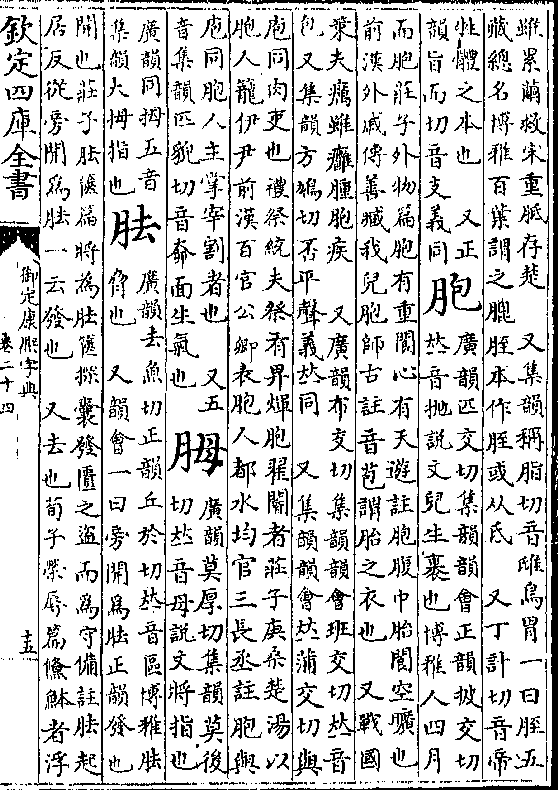 雖累繭救宋重胝存楚　又集韻稱脂切音鴟鳥胃一曰胵五
藏總名博雅百葉謂之膍胵本作胵或从氐　又丁計切音帝
體之本也　又正
韻旨而切音支義同
胞
廣韻匹交切集韻韻會正韻披交切
𠀤音拋說文兒生裹也博雅人四月
而胞莊子外物篇胞有重閬心有天遊註胞腹中胎閬空曠也
前漢外戚傳善臧我兒胞師古註音苞謂胎之衣也　又戰國
策夫癘雖癰腫胞疾　又廣韻布交切集韻韻會班交切𠀤音
包又集韻方鳩切否平聲義𠀤同　又集韻韻會𠀤蒲交切與
庖同肉吏也禮祭統夫祭有畀煇胞翟閽者莊子庚桑楚湯以
胞人籠伊尹前漢百官公卿表胞人都水均官三長丞註胞與
庖同胞人主掌宰割者也　又五
音集韻匹貌切音奅面生氣也
胟
廣韻莫厚切集韻莫後
切𠀤音母說文將指也
廣韻同拇五音
集韻大拇指也
胠
廣韻去魚切正韻丘於切𠀤音區博雅胠
脅也　又韻會一曰旁開爲胠正韻發也
開也莊子胠篋篇將爲胠篋探囊發匱之盜而爲守備註胠起
居反從旁開爲胠一云發也　又去也荀子榮辱篇鯈䱁者浮
欽定四庫全書
御定康熙字典
卷二十四
十五